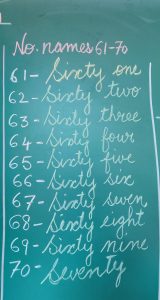 No. names 61-70
61- Sixty one
62- Sixty two
63- Sixty three
64- Sixty four
65- Sixty five
66- Sixty six
67- Sixty seven
68- Sixty eight
69- Sixty nine
70- Seventy